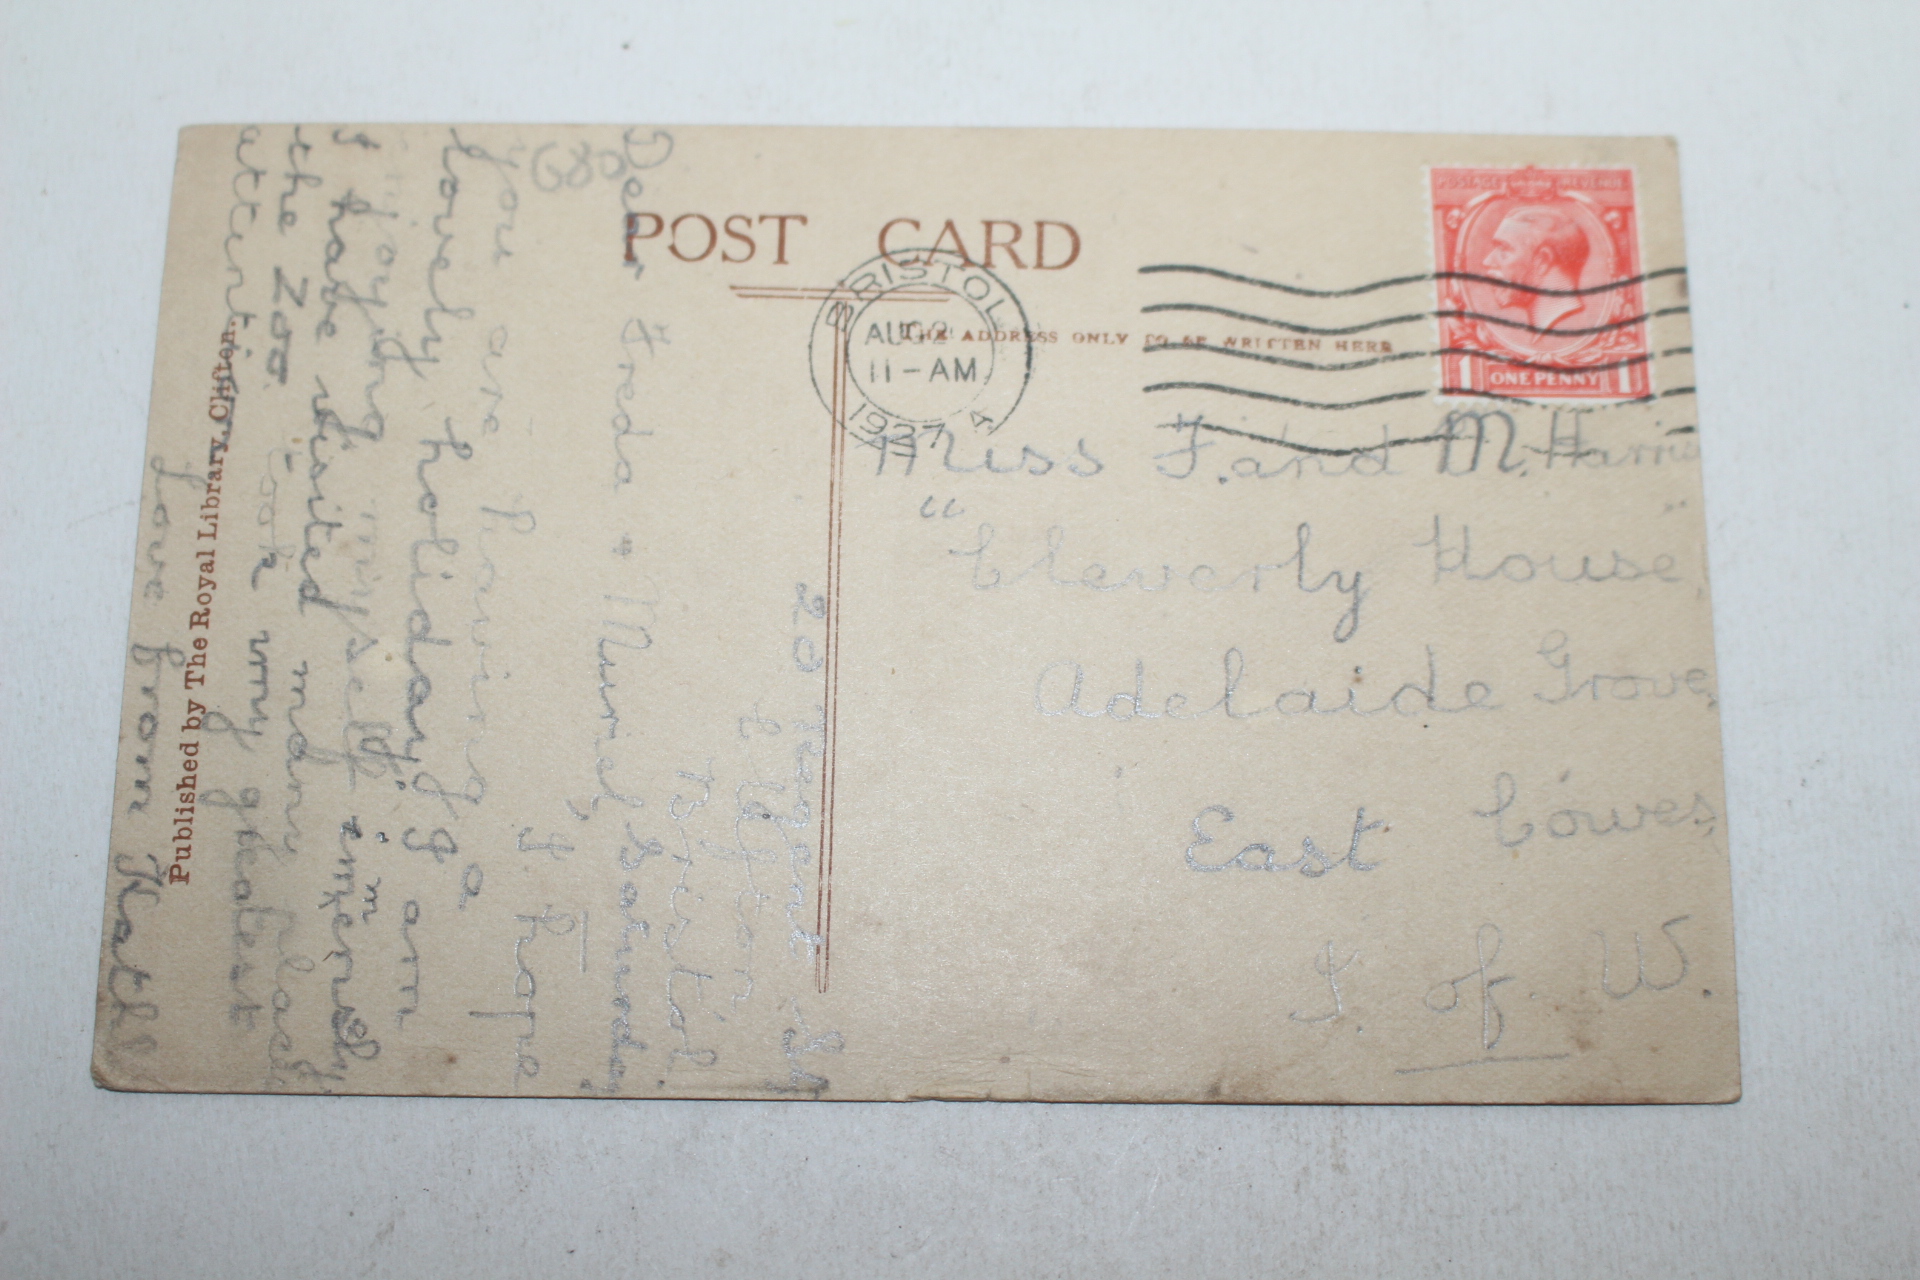 POST CARD
THE ADDRESS ONLY TO BE WRITTEN HERE
BRISTOL
AUG 2
11-AM
1927
A
POSTAGE REVENUE
1 ONE PENNY 1
Miss F. and M. Harris
"Cleverly House",
Adelaide Grove,
East Cowes,
I. of W.
20 Regent St
Clifton
Bristol
Saturday
Dear Freda + Muriel,
I hope
you are having a
lovely holiday. I am
enjoying myself immensely.
I have visited many places in
the Zoo took my greatest
attention
Love from Kath
680
Published by The Royal Library, Clifton.